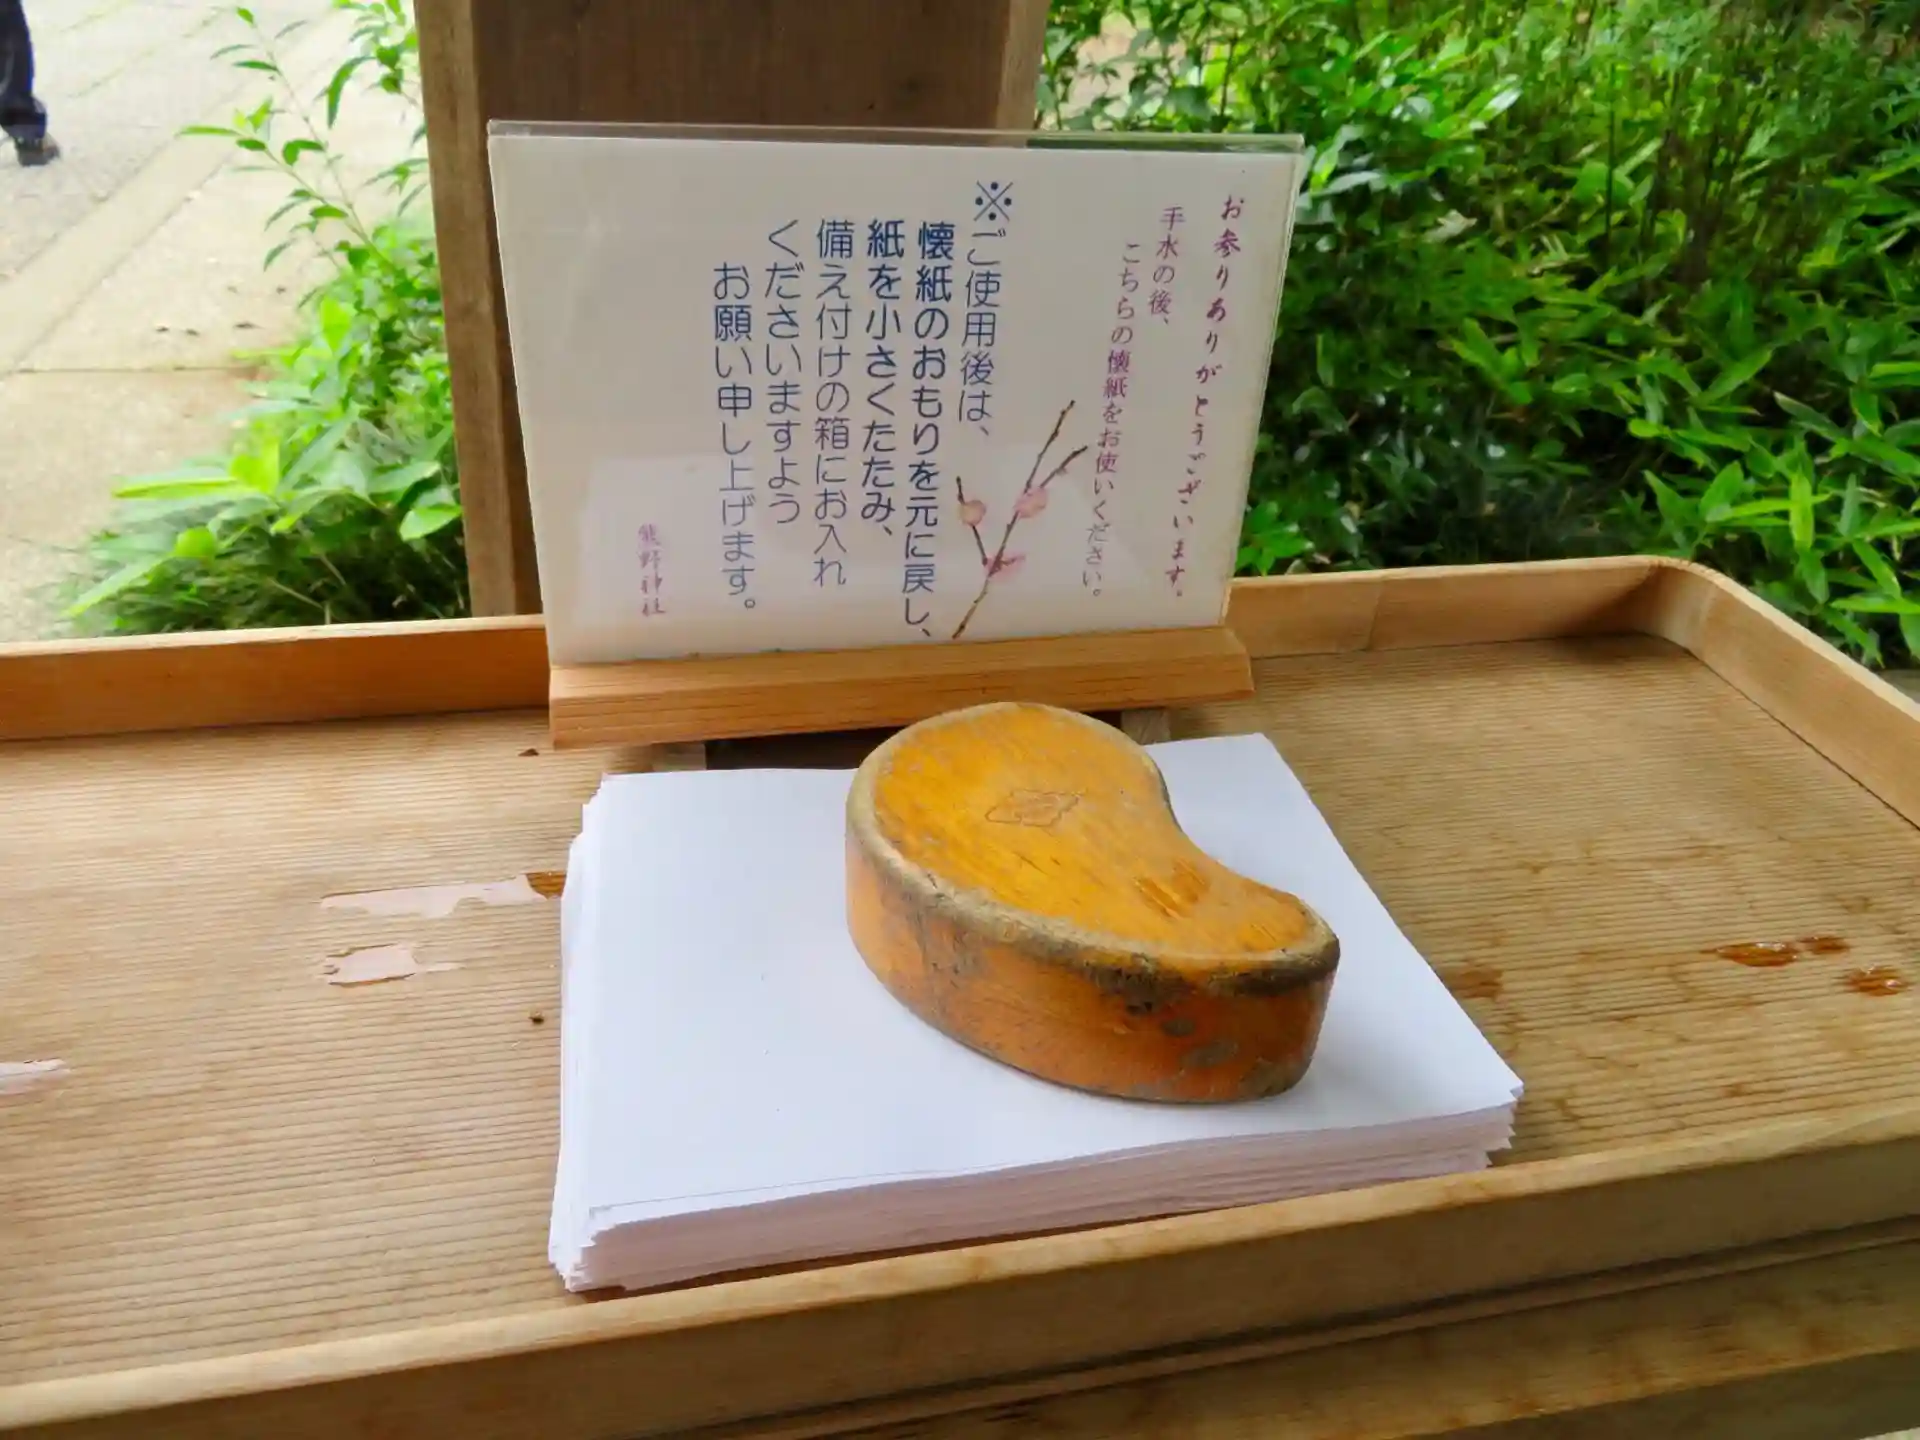 お参りありがとうございます。
手水の後、
こちらの懐紙をお使いください。
※ご使用後は、
懐紙のおもりを元に戻し、
紙を小さくたたみ、
備え付けの箱にお入れ
くださいますよう
お願い申し上げます。
熊野神社